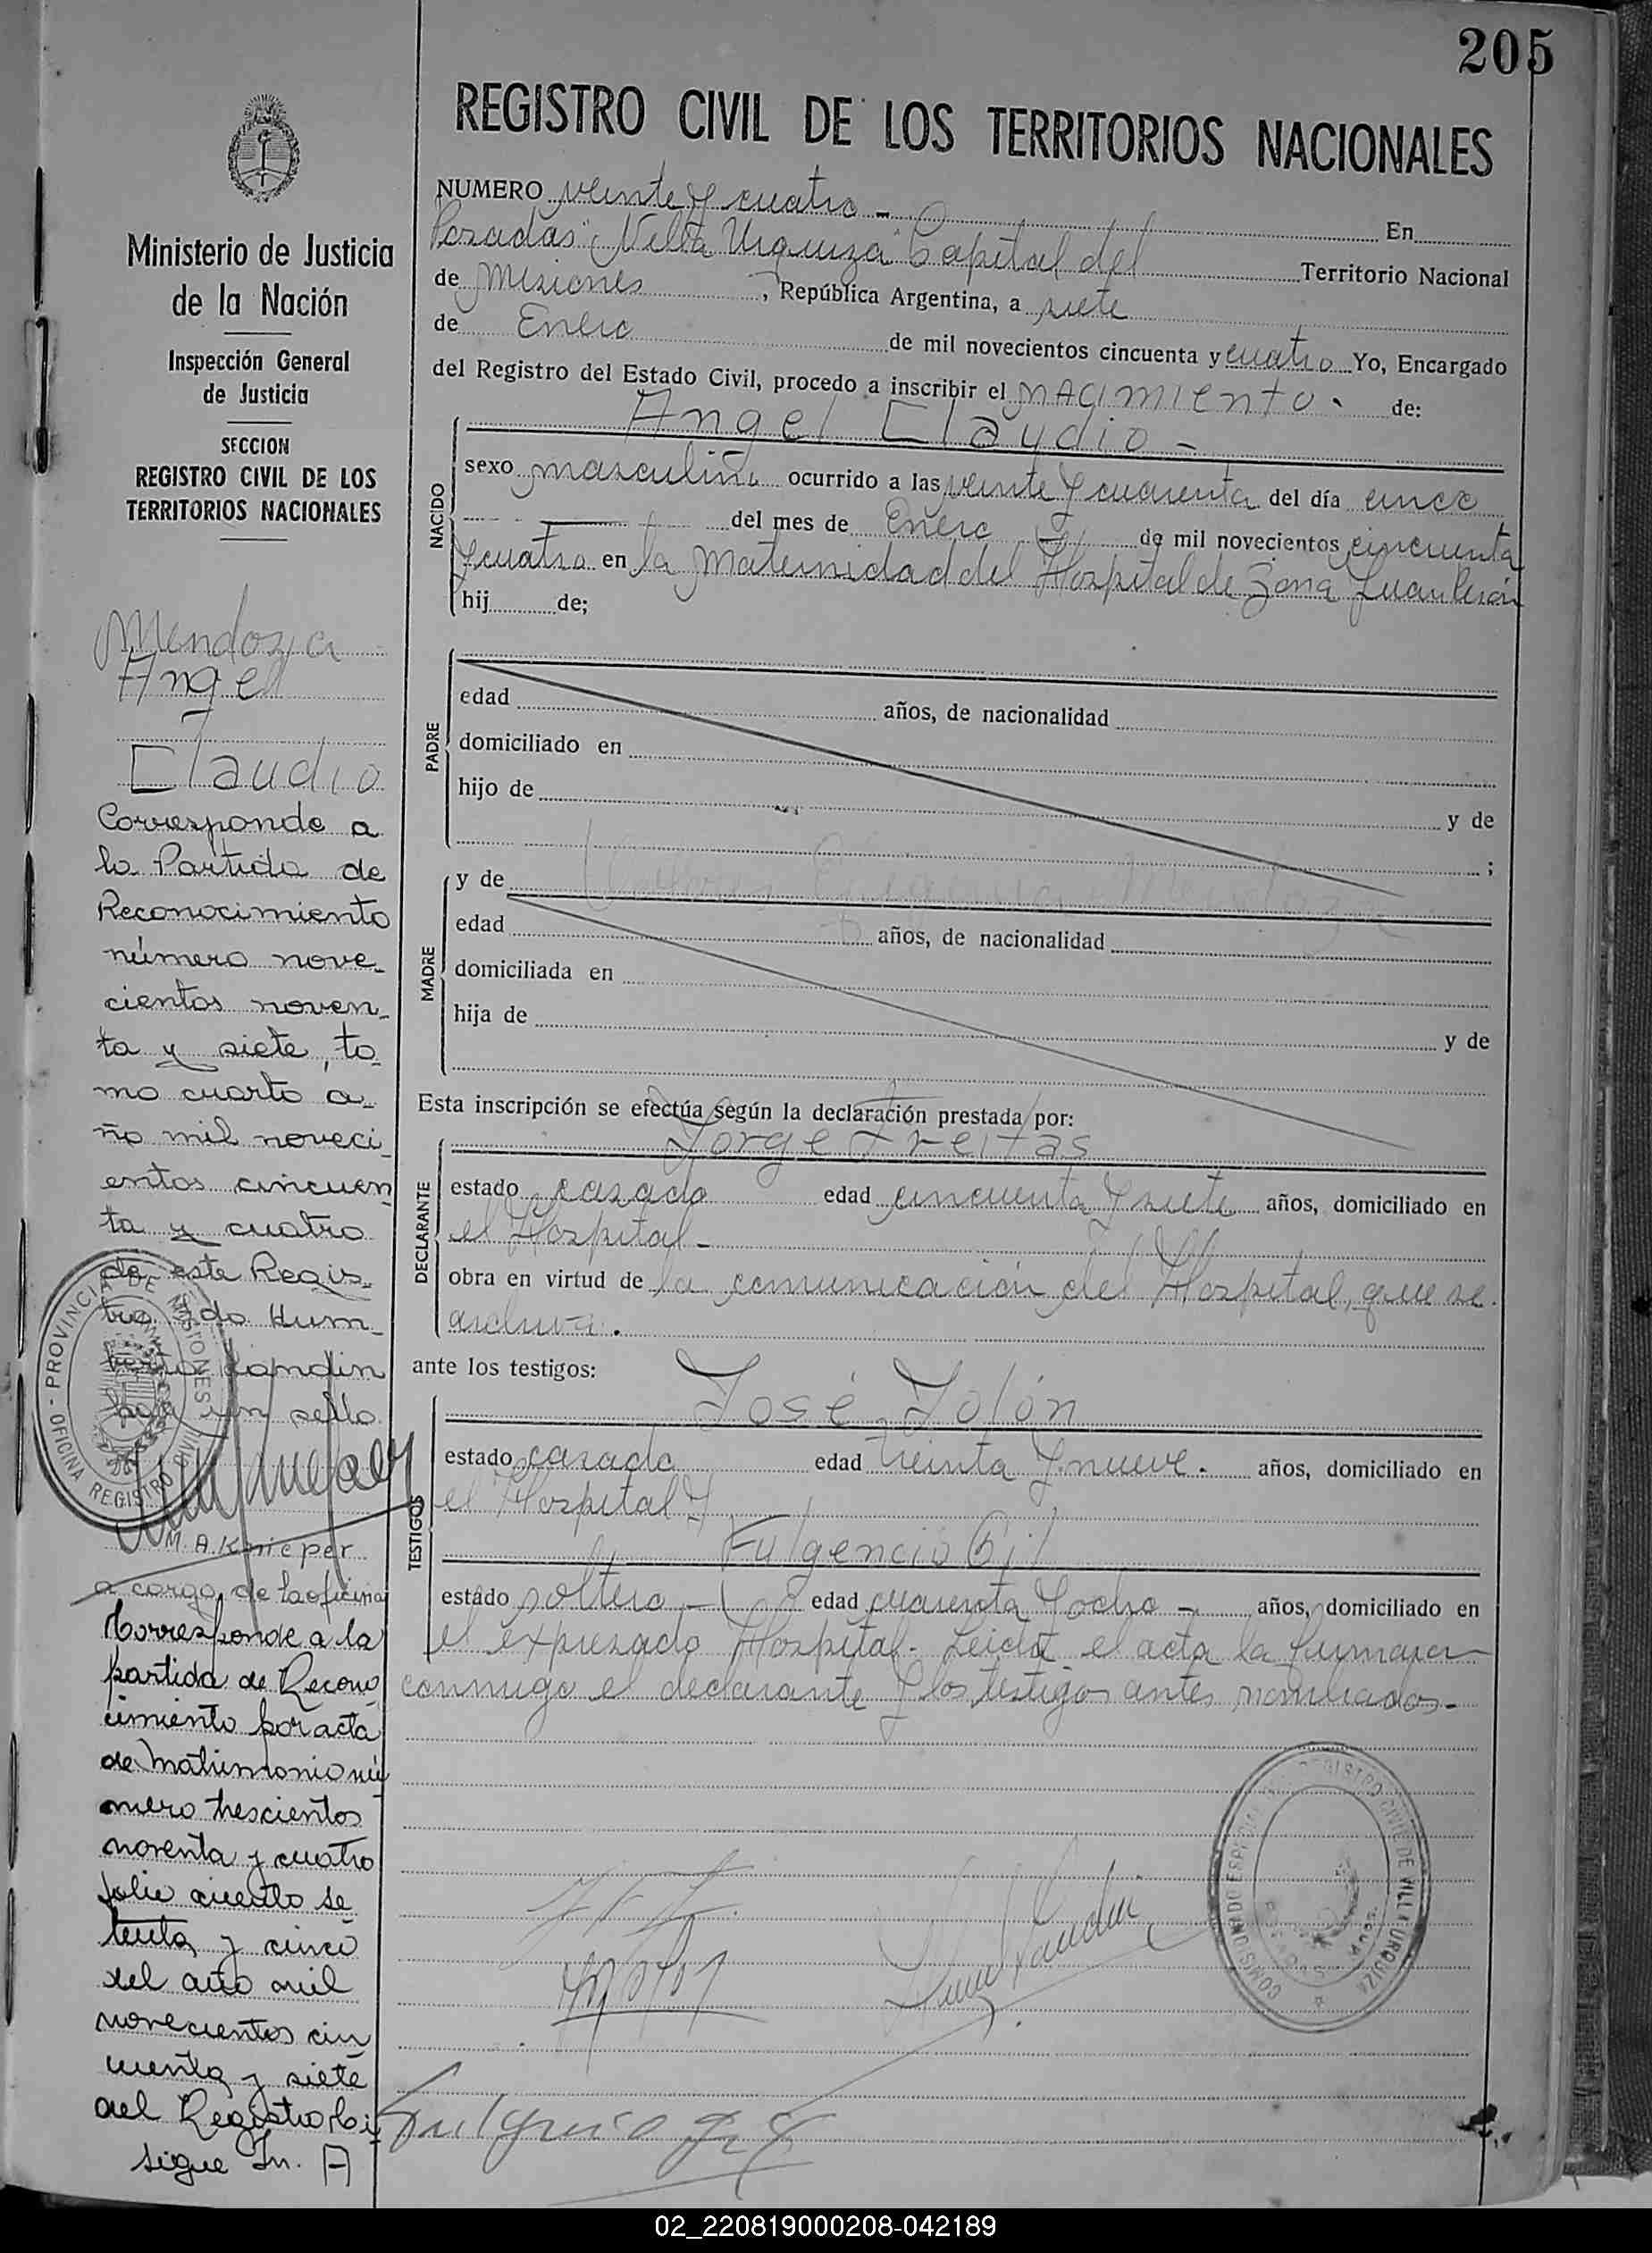 205
REGISTRO CIVIL DE LOS TERRITORIOS NACIONALES
Ministerio de Justicia
de la Nación
Inspección General
de Justicia
SECCION
REGISTRO CIVIL DE LOS
TERRITORIOS NACIONALES
Mendoza
Angel
Claudio
Corresponde a
la Partida de
Reconocimiento
número nove-
cientos noven-
ta y siete, to-
mo cuarto a-
ño mil noveci-
entos cincuen
ta y cuatro
de este Regis-
tro fdo Hum-
berto
hay un sello
M. A. Knieper
a cargo de la oficina
Corresponde a la
partida de Recono
cimiento por acta
de Matrimonio nú
mero trescientos
noventa y cuatro
folio ciento se
tenta y cinco
del año mil
novecientos cin
cuenta y siete
del Registro Ci
sigue In. A
PROVINCIA DE MISIONES
OFICINA REGISTRO CIVIL
NUMERO veinte y cuatro - En
Posadas "Villa Urquiza" Capital del Territorio Nacional
de Misiones, República Argentina, a siete
de Enero de mil novecientos cincuenta y cuatro Yo, Encargado
del Registro del Estado Civil, procedo a inscribir el nacimiento. de:
NACIDO
Angel Claudio -
sexo masculino ocurrido a las veinte y cuarenta del día cinco
del mes de Enero de mil novecientos cincuenta
y cuatro en la Maternidad del Hospital de Zona Juan Perón
hij de;
PADRE
edad años, de nacionalidad
domiciliado en
hijo de y de
;
MADRE
y de
edad años, de nacionalidad
domiciliada en
hija de y de
Esta inscripción se efectúa según la declaración prestada por:
DECLARANTE
Jorge Freitas
estado casado edad cincuenta y siete años, domiciliado en
el Hospital -
obra en virtud de la comunicación del Hospital, que se
archiva.
ante los testigos:
TESTIGOS
José Jolón
estado casado edad treinta y nueve. años, domiciliado en
el Hospital y
Fulgencio Gil
estado soltero - edad cuarenta y ocho - años, domiciliado en
el expresado Hospital. Leida el acta la firman
conmigo el declarante y los testigos antes nombrados-
REGISTRO CIVIL DE VILLA URQUIZA
Fulgencio Gil
02_220819000208-042189